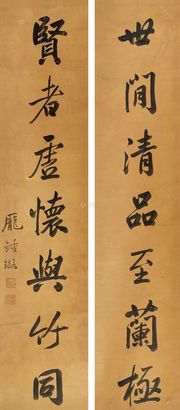 世間清品至蘭極
賢者虛懷與竹同
龐鍾璐